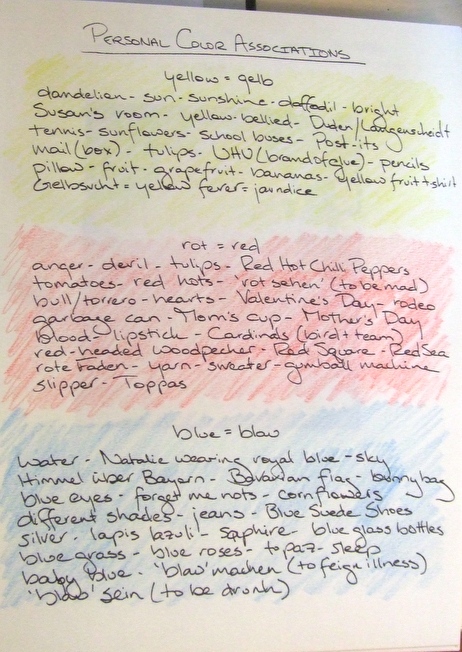 PERSONAL COLOR ASSOCIATIONS
yellow = gelb
dandelion - sun - sunshine - daffodil - bright
Susan's room - yellow-bellied - Duden/Langenscheidt
tennis - sunflowers - school buses - Post-its
mail (box) - tulips - UHU (brand of glue) - pencils
pillow - fruit - grapefruit - bananas - yellow fruit t-shirt
Gelbsucht = yellow fever = jaundice
rot = red
anger - devil - tulips - Red Hot Chili Peppers
tomatoes - red hots - 'rot sehen' (to be mad)
bull/torrero - hearts - Valentine's Day - rodeo
garbage can - Mom's cup - Mother's Day
Blood - lipstick - Cardinals (bird + team)
red-headed woodpecker - Red Square - Red Sea
rote Faden - yarn - sweater - gumball machine
slipper - Toppas
blue = blau
Water - Natalie wearing royal blue - sky
Himmel über Bayern - Bavarian flag - bunnybag
blue eyes - forget me nots - cornflowers
different shades - jeans - Blue Suede Shoes
silver - lapis lazuli - saphire - blue glass bottles
blue grass - blue roses - topaz - sleep
baby blue - 'blau' machen (to feign illness)
'blau' sein (to be drunk)